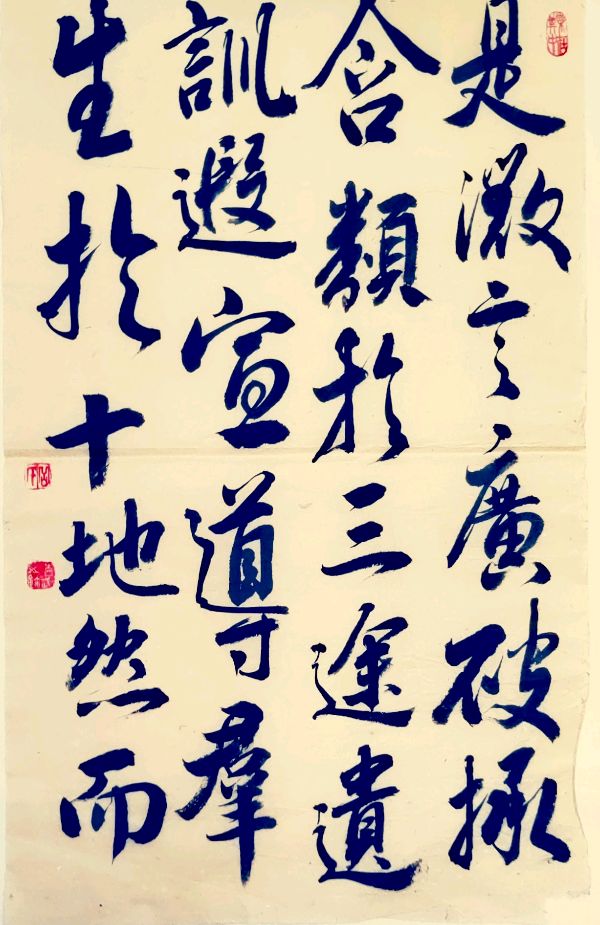 是微言廣破拯
含類於三途遺
訓遐宣導羣
生於十地然而